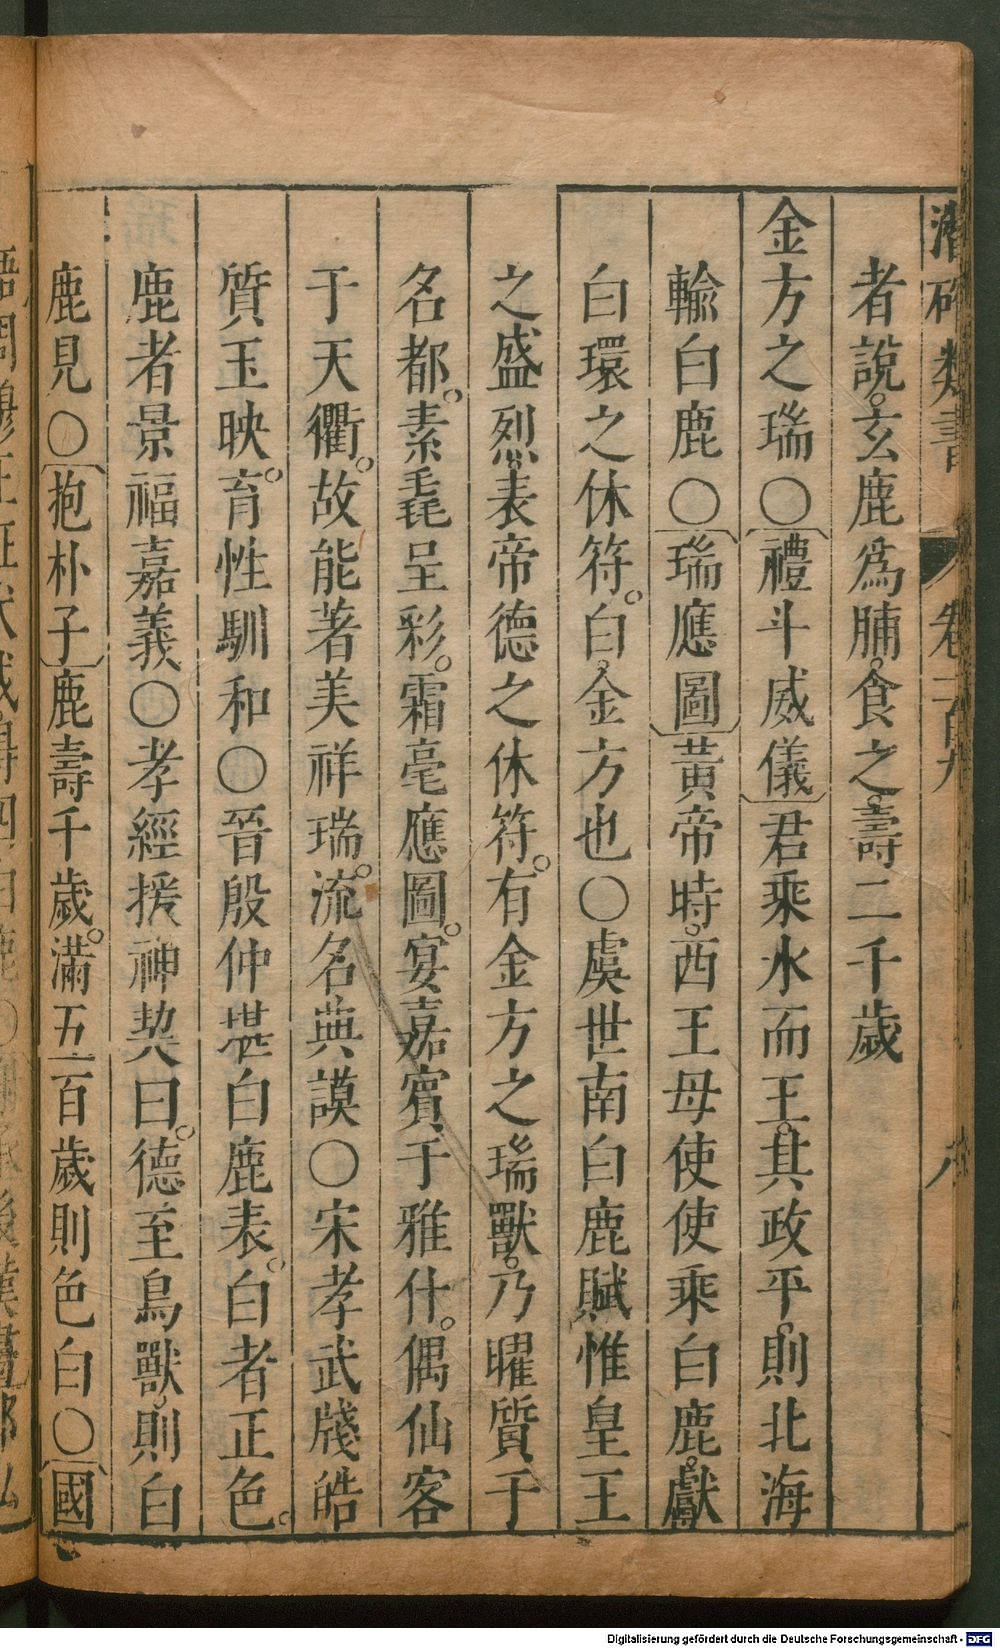 潛確類書 卷一百九 六
者說玄鹿爲脯食之壽二千歲
金方之瑞○禮斗威儀君乘水而王其政平則北海
輸白鹿○瑞應圖黃帝時西王母使使乘白鹿獻
白環之休符。白金方也○虞世南白鹿賦惟皇王
之盛烈表帝德之休符。有金方之瑞獸乃曜質于
名都。素毳呈彩。霜毫應圖。宴嘉賓于雅什。偶仙客
于天衢。故能著美祥瑞。流名典謨○宋孝武牋皓
質玉映。育性馴和○晉殷仲堪白鹿表。白者正色。
鹿者景福嘉義○孝經援神契曰。德至鳥獸則白
鹿見○抱朴子鹿壽千歲。滿五百歲則色白○國
Digitalisierung gefördert durch die Deutsche Forschungsgemeinschaft - DFG